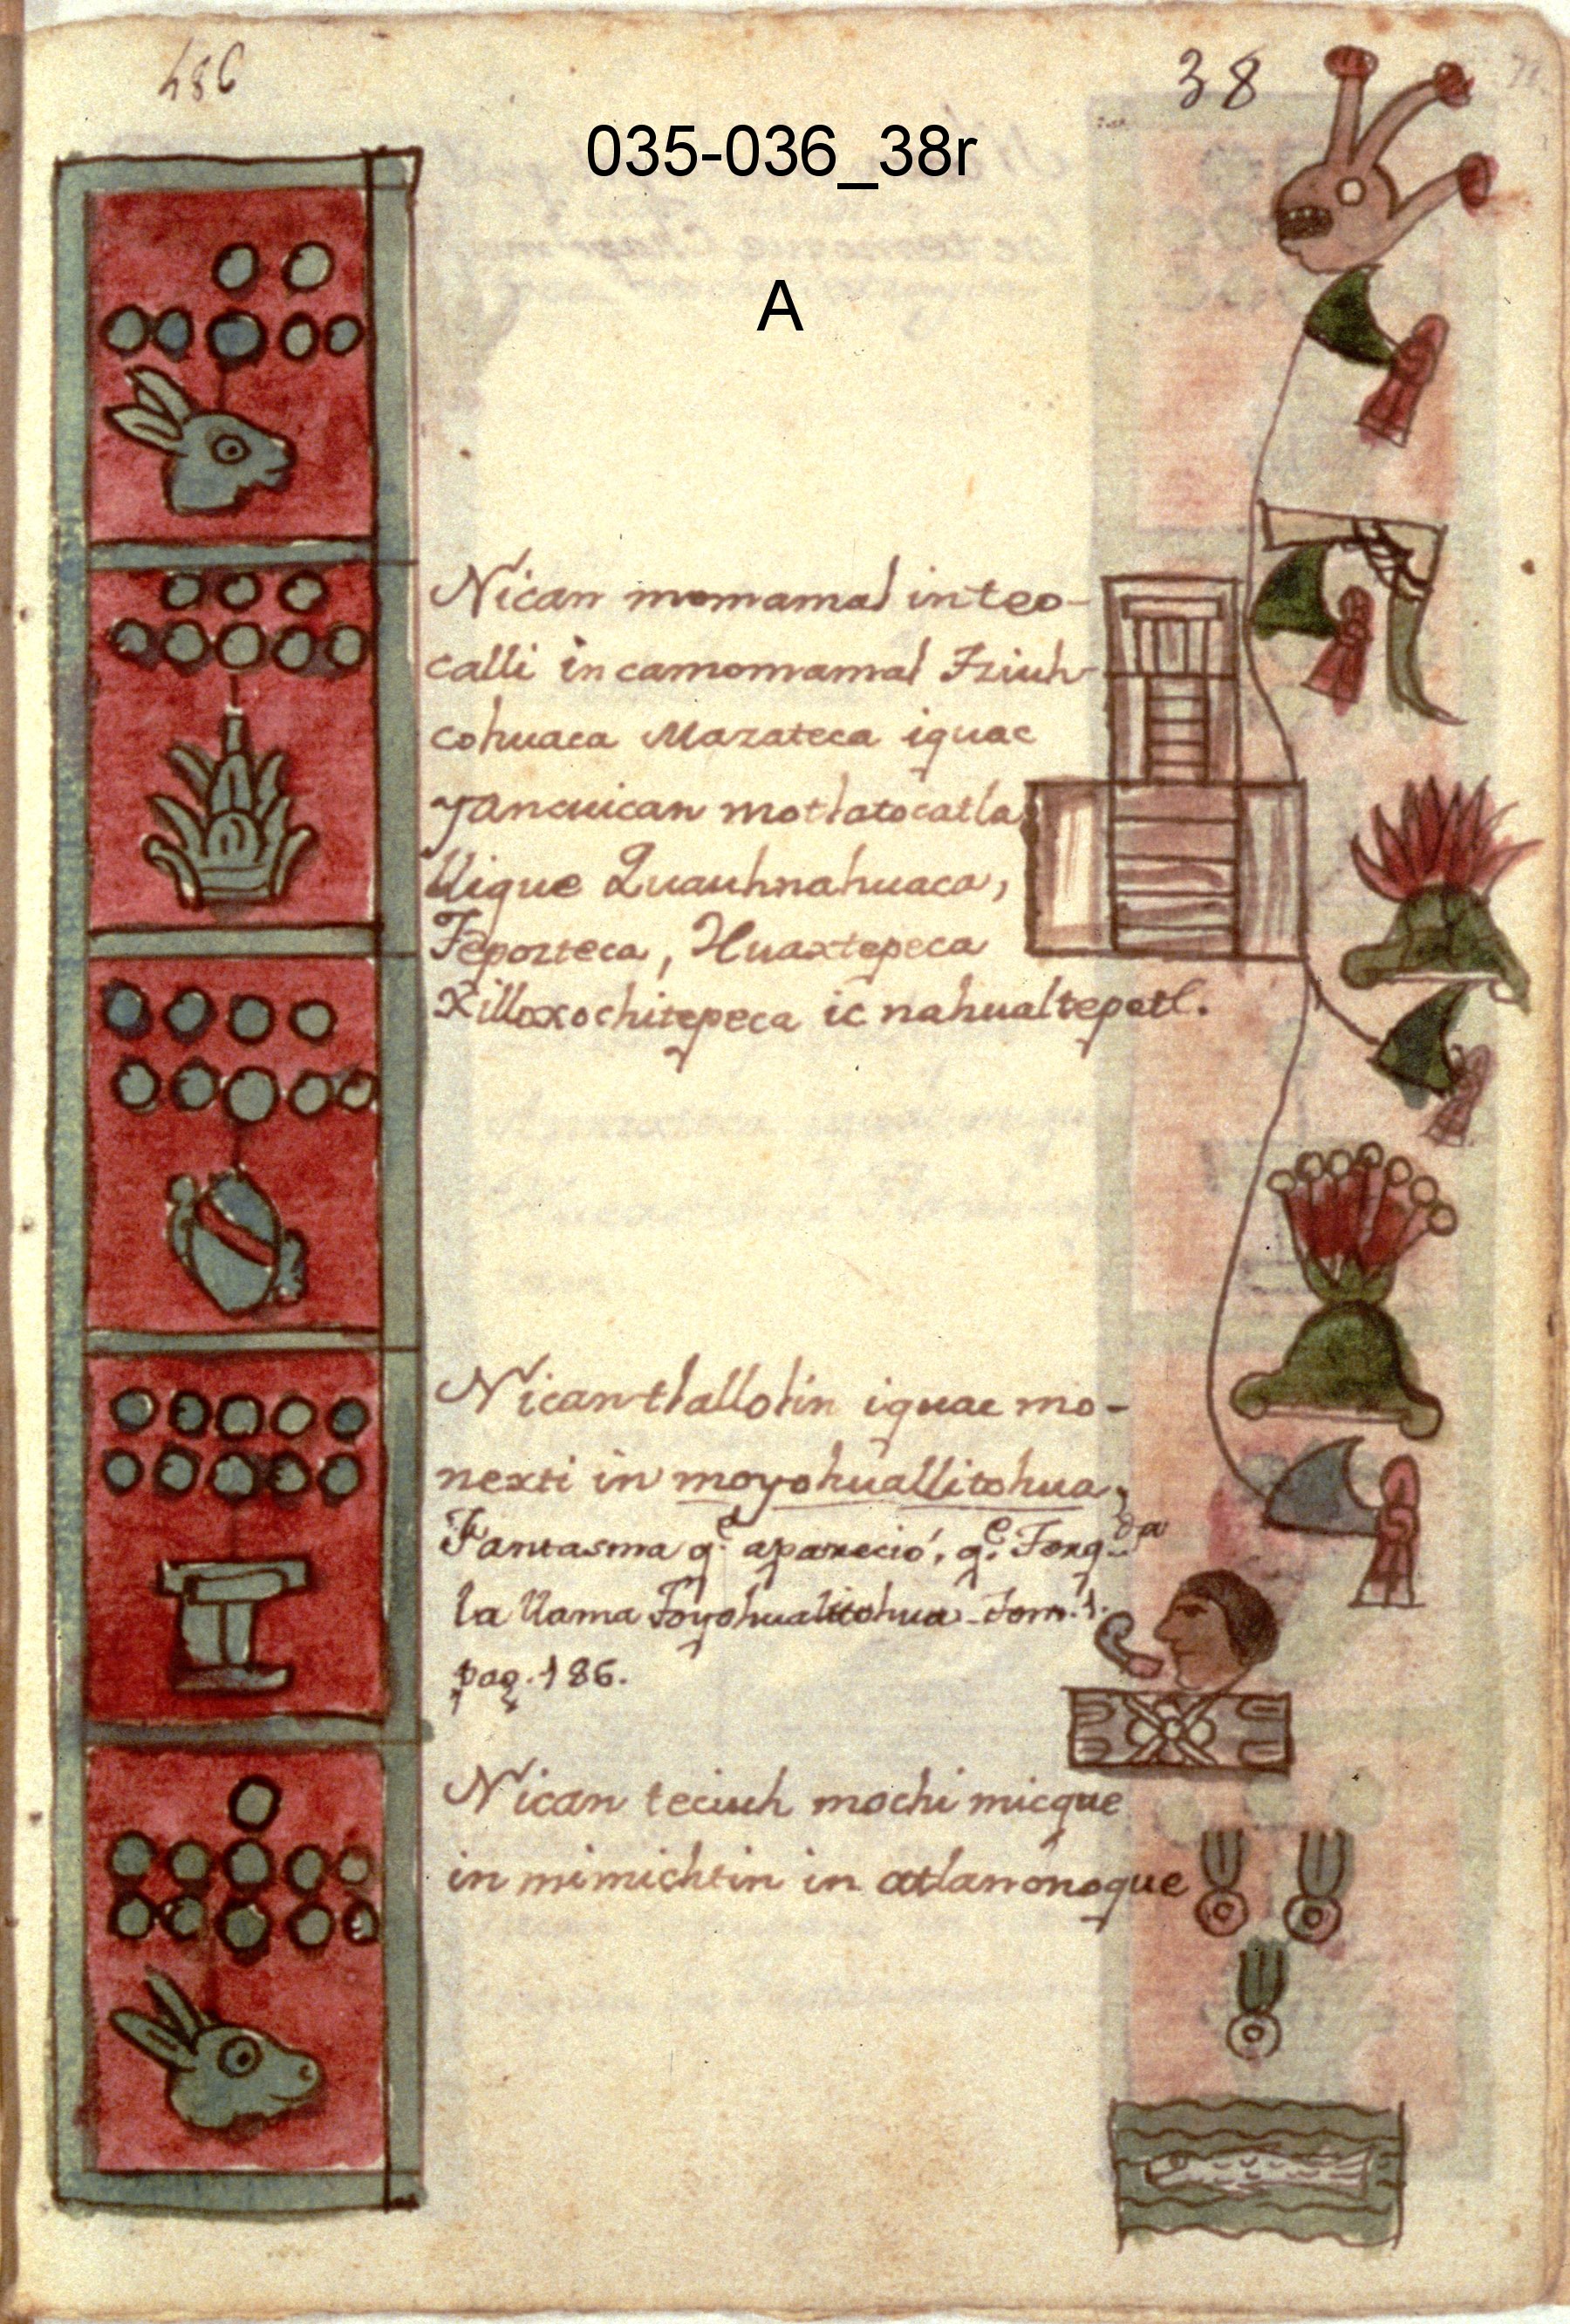 486
38
035-036_38r
A
Nican momamal in teo-
calli in camomamal Tziuh-
cohuaca Mazateca iquac
yancuican motlatocatla
llique Quauhnahuaca,
Tepozteca, Huaxtepeca
Xilloxochitepeca ic nahualtepetl.
Nican tlallolin iquac mo-
nexti in moyohuallitohua,
Fantasma q.e apareció, q.e Torq.da
la llama Toyohualitohua. Tom. 1.
pag. 186.
Nican teciuh mochi micque
in mimichtin in atlanonoque